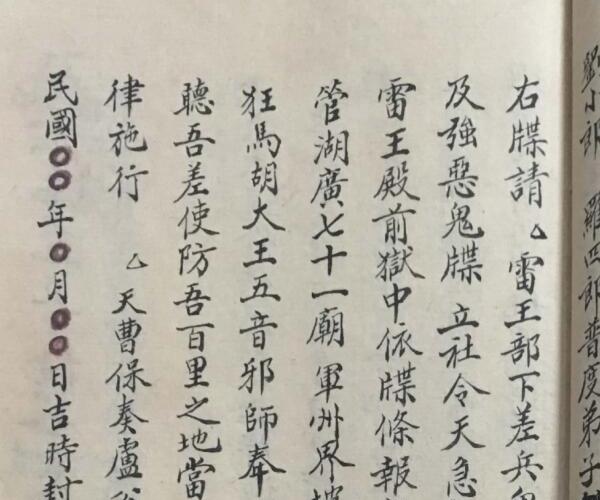 劉小郎 羅四郎普度弟子
右牒請厶雷王部下差兵
及強惡鬼牒 立社令天急
雷王殿前獄中依牒條報
管湖廣七十一廟 軍州界
狂馬胡大王五音邪師奉
聽吾差使防吾百里之地當
律施行 厶天曹保奏盧
民國〇〇年〇月〇〇日吉時封